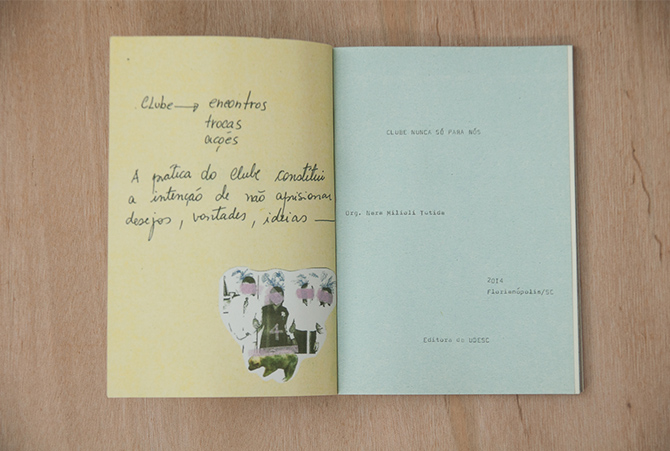 Clube → encontros
trocas
ações
A prática do clube constitui
a intenção de não aprisionar
desejos, vontades, ideias —
4
CLUBE NUNCA SÓ PARA NÓS
Org. Nara Milioli Tutida
2014
Florianópolis/SC
Editora da UDESC